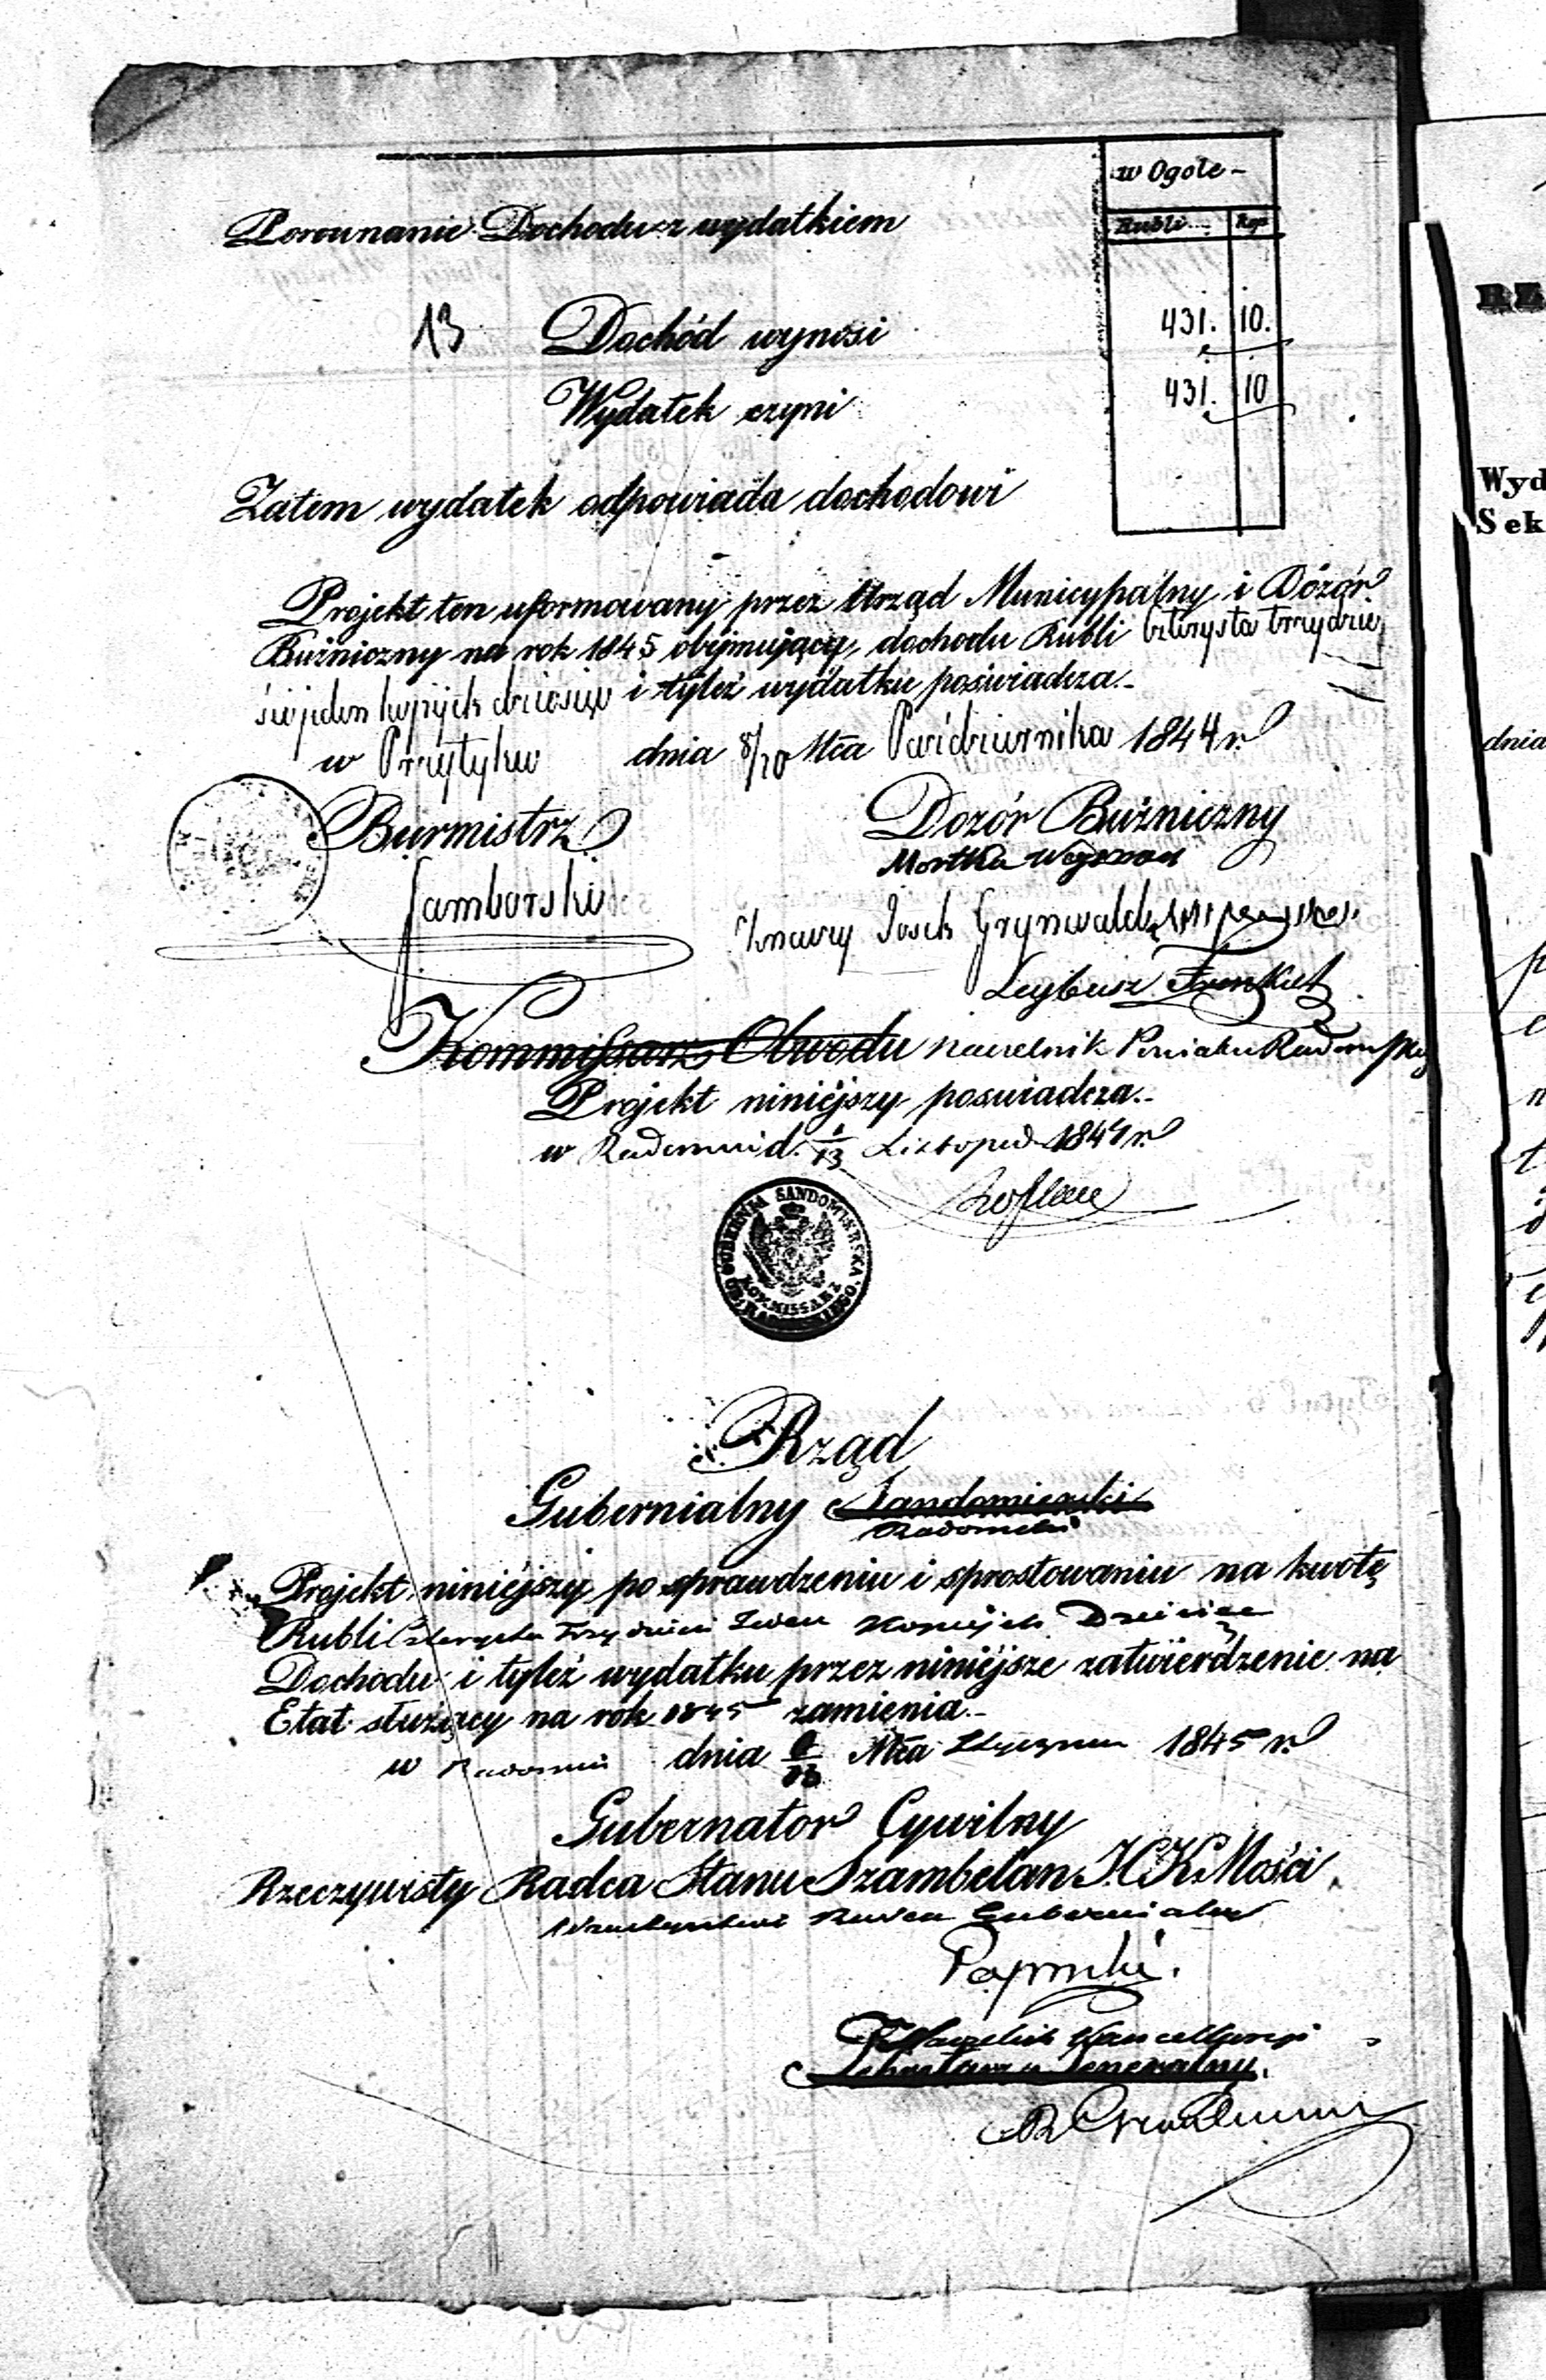 w Ogole -
Porównanie Dochodu z wydatkiem
Rubli Kop
13 Dochód wynosi 431. 10.
Wydatek czyni 431. 10
Zatem wydatek odpowiada dochodowi
Projekt ten uformowany przez Urząd Municypalny i Dozór
Bużniczny na rok 1845 obejmujący dochodu Rubli Czterysta trzydzie
ści jeden kopijek dziesięc i tyleż wydatku poświadcza.-
w Przytyku dnia 8/20 Mca Pazdziernika 1844 r.
Burmistrz Dozór Bużniczny
Mortka
Jamborski
Znaczy Josek Grynwald
Leybusz Frenkiel
Kommissarz Obwodu Naczelnik Powiatu Radomski
Projekt niniéjszy poswiadcza.-
w Radomiu d. 1/13 Listopad 1844 r.
GUBERNIA SANDOMIERSKA
KOMMISSARZ
OB. RADOMSKIEGO
Rząd
Gubernialny Sandomierski
Radomski
Projekt niniéjszy po sprawdzeniu i sprostowaniu na kwotę
Rubli Czterysta Trzydzieści Jeden Kopiejek Dziesięc
Dochodu i tyleż wydatku przez niniéjsze zatwierdzenie na
Etat służący na rok 1845 zamienia.-
w Radomiu dnia Mca Stycznia 1845 r.
Gubernator Cywilny
Rzeczywisty Radca Stanu Szambelan J.C.K. Mości
Radca Gubernialny
Naczelnik Kancellaryi
Sekretarz Jeneralny.
RZ
Wyd
Sek
dnia